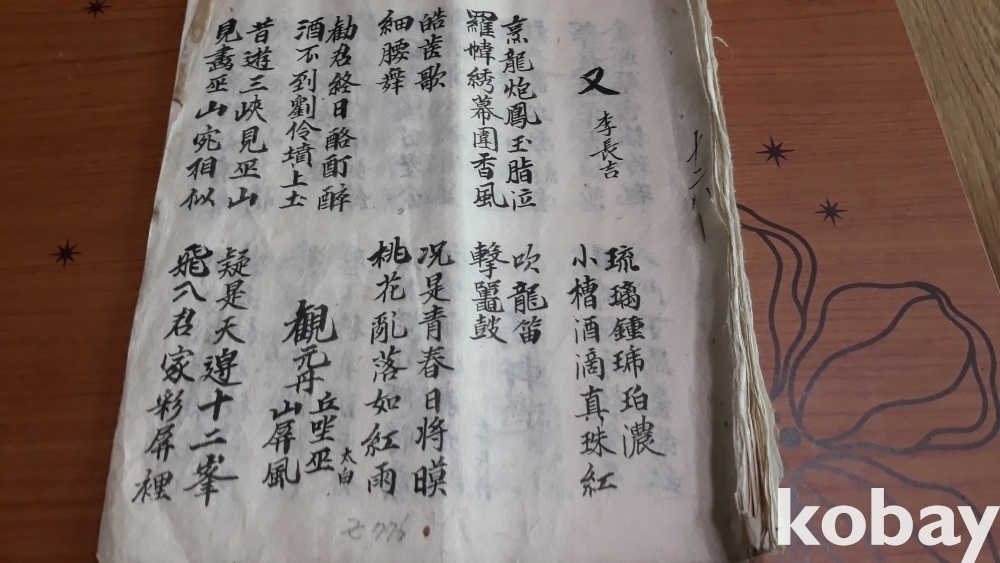 又
李長吉
琉璃鍾琥珀濃
小槽酒滴真珠紅
烹龍炮鳳玉脂泣
羅幃綉幕圍香風
吹龍笛
擊鼉鼓
皓齒歌
細腰舞
况是青春日將暯
桃花亂落如紅雨
勸君終日酩酊醉
酒不到劉伶墳上土
觀元丹丘坐巫山屏風
太白
昔遊三峽見巫山
見畫巫山宛相似
疑是天邊十二峯
飛入君家彩屏裡
kobay